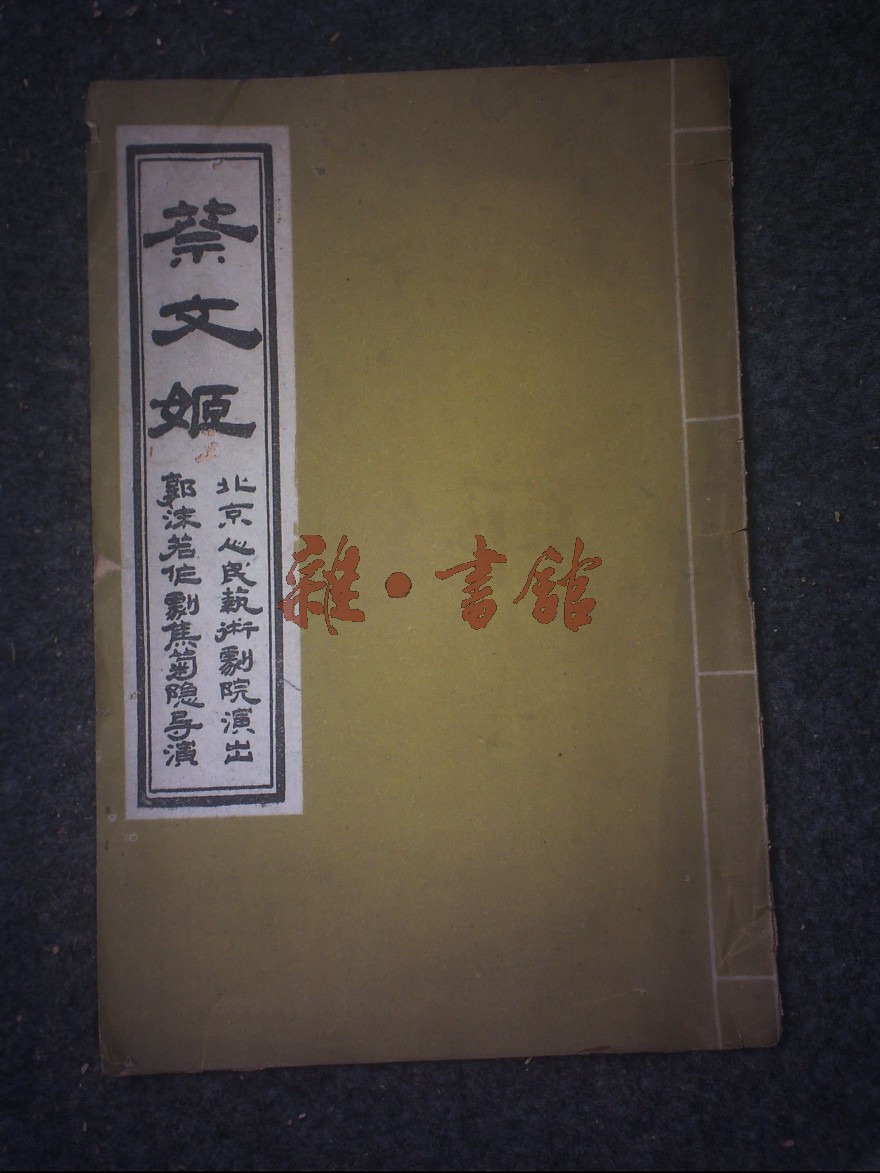 蔡文姬
北京人民藝術劇院演出
郭沫若作劇焦菊隐导演
雜·書舘